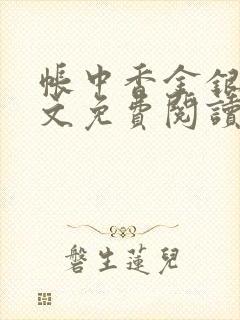 帳中香金銀
文免費閱讀
磐生蓮兒